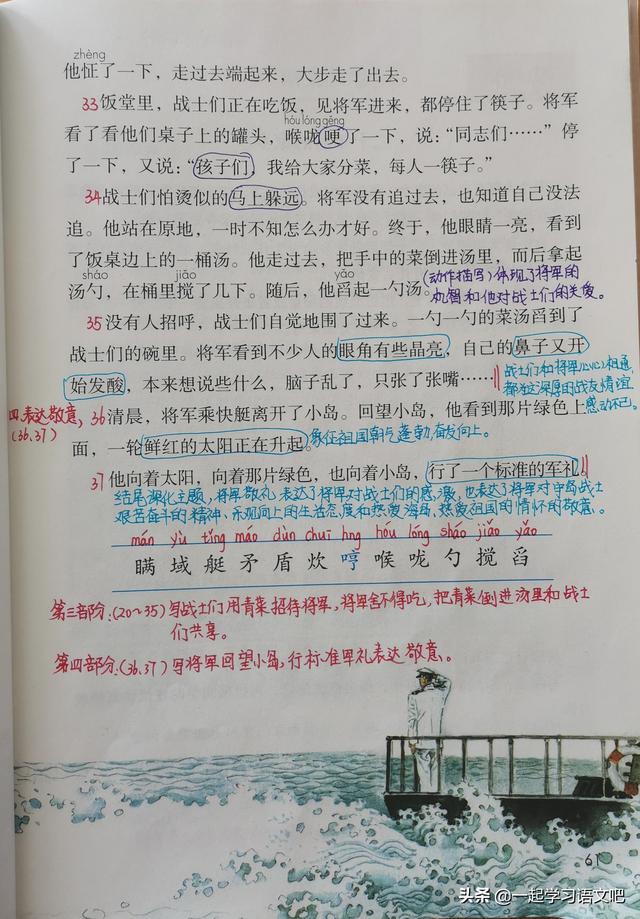 zhèng
他怔了一下，走过去端起来，大步走了出去。
33饭堂里，战士们正在吃饭，见将军进来，都停住了筷子。将军
hóu lóng gěng
看了看他们桌子上的罐头，喉咙哽了一下，说：“同志们……”停
了一下，又说：“孩子们，我给大家分菜，每人一筷子。”
34战士们怕烫似的马上躲远。将军没有追过去，也知道自己没法
追。他站在原地，一时不知怎么办才好。终于，他眼睛一亮，看到
了饭桌边上的一桶汤。他走过去，把手中的菜倒进汤里，而后拿起
sháo jiǎo yǎo
汤勺，在桶里搅了几下。随后，他舀起一勺汤。
(动作描写)体现了将军的
机智和他对战士们的关爱。
35没有人招呼，战士们自觉地围了过来。一勺一勺的菜汤舀到了
战士们的碗里。将军看到不少人的眼角有些晶亮，自己的鼻子又开
始发酸，本来想说些什么，脑子乱了，只张了张嘴……
战士们和将军心心相通，
都为这深厚的战友情谊
感动不已。
四.表达敬意，
(36、37)
36清晨，将军乘快艇离开了小岛。回望小岛，他看到那片绿色上
面，一轮鲜红的太阳正在升起。象征祖国朝气蓬勃，奋发向上。
37他向着太阳，向着那片绿色，也向着小岛，行了一个标准的军礼。
结尾深化主题，将军敬礼表达了将军对战士们的感激，也表达了将军对守岛战士
艰苦奋斗的精神、乐观向上的生活态度和热爱海岛、热爱祖国的情怀的敬意。
mán yù tǐng máo dùn chuī hng hóu lóng sháo jiǎo yǎo
瞒 域 艇 矛 盾 炊 哼 喉 咙 勺 搅 舀
第三部分：(20～35)写战士们用青菜招待将军，将军舍不得吃，把青菜倒进汤里和战士
们共享。
第四部分：(36、37)写将军回望小岛，行标准军礼表达敬意。
61
头条 @一起学习语文吧